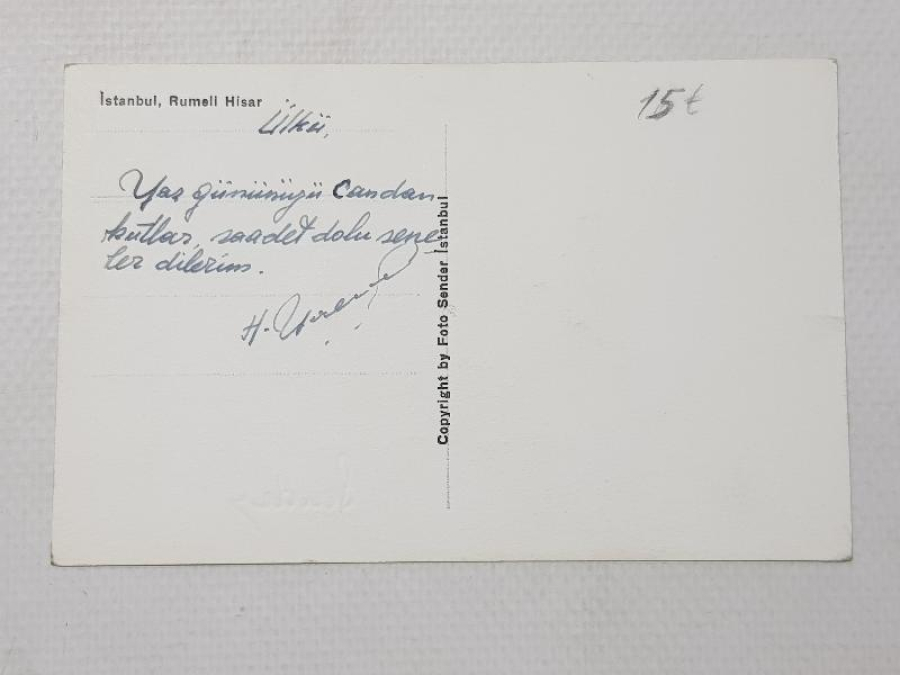 İstanbul, Rumeli Hisar
15₺
Ülkü,
Yaş gününüzü Candan
kutlar, saadet dolu sene
ler dilerim.
H.
Copyright by Foto Sender İstanbul